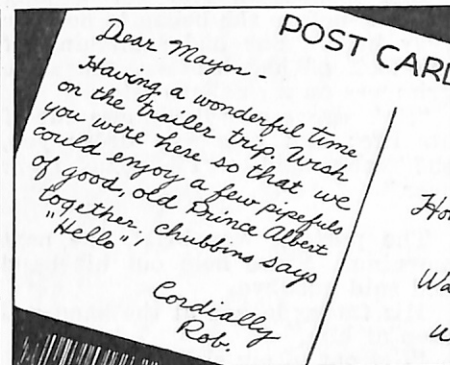 POST CARD
Dear Mayor -
Having a wonderful time
on the trailer trip. Wish
you were here so that we
could enjoy a few pipefuls
of good, old Prince Albert
together, chubbins says
"Hello",
Cordially
Rob.